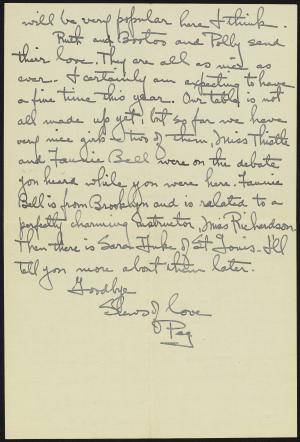 will be very popular here I think.
Ruth and Bootoo and Polly send
their love. They are all as nice as
ever. I certainly am expecting to have
a fine time this year. Our table is not
all made up yet, but so far we have
very nice girls - two of them, Miss Thistle
and Fannie Bell were on the debate
you heard while you were here. Fannie
Bell is from Brooklyn and is related to a
perfectly charming instructor, Miss Richardson.
Then there is Sara of St. Louis - I'll
tell you more about them later.
Goodbye
Slews of love
Peg